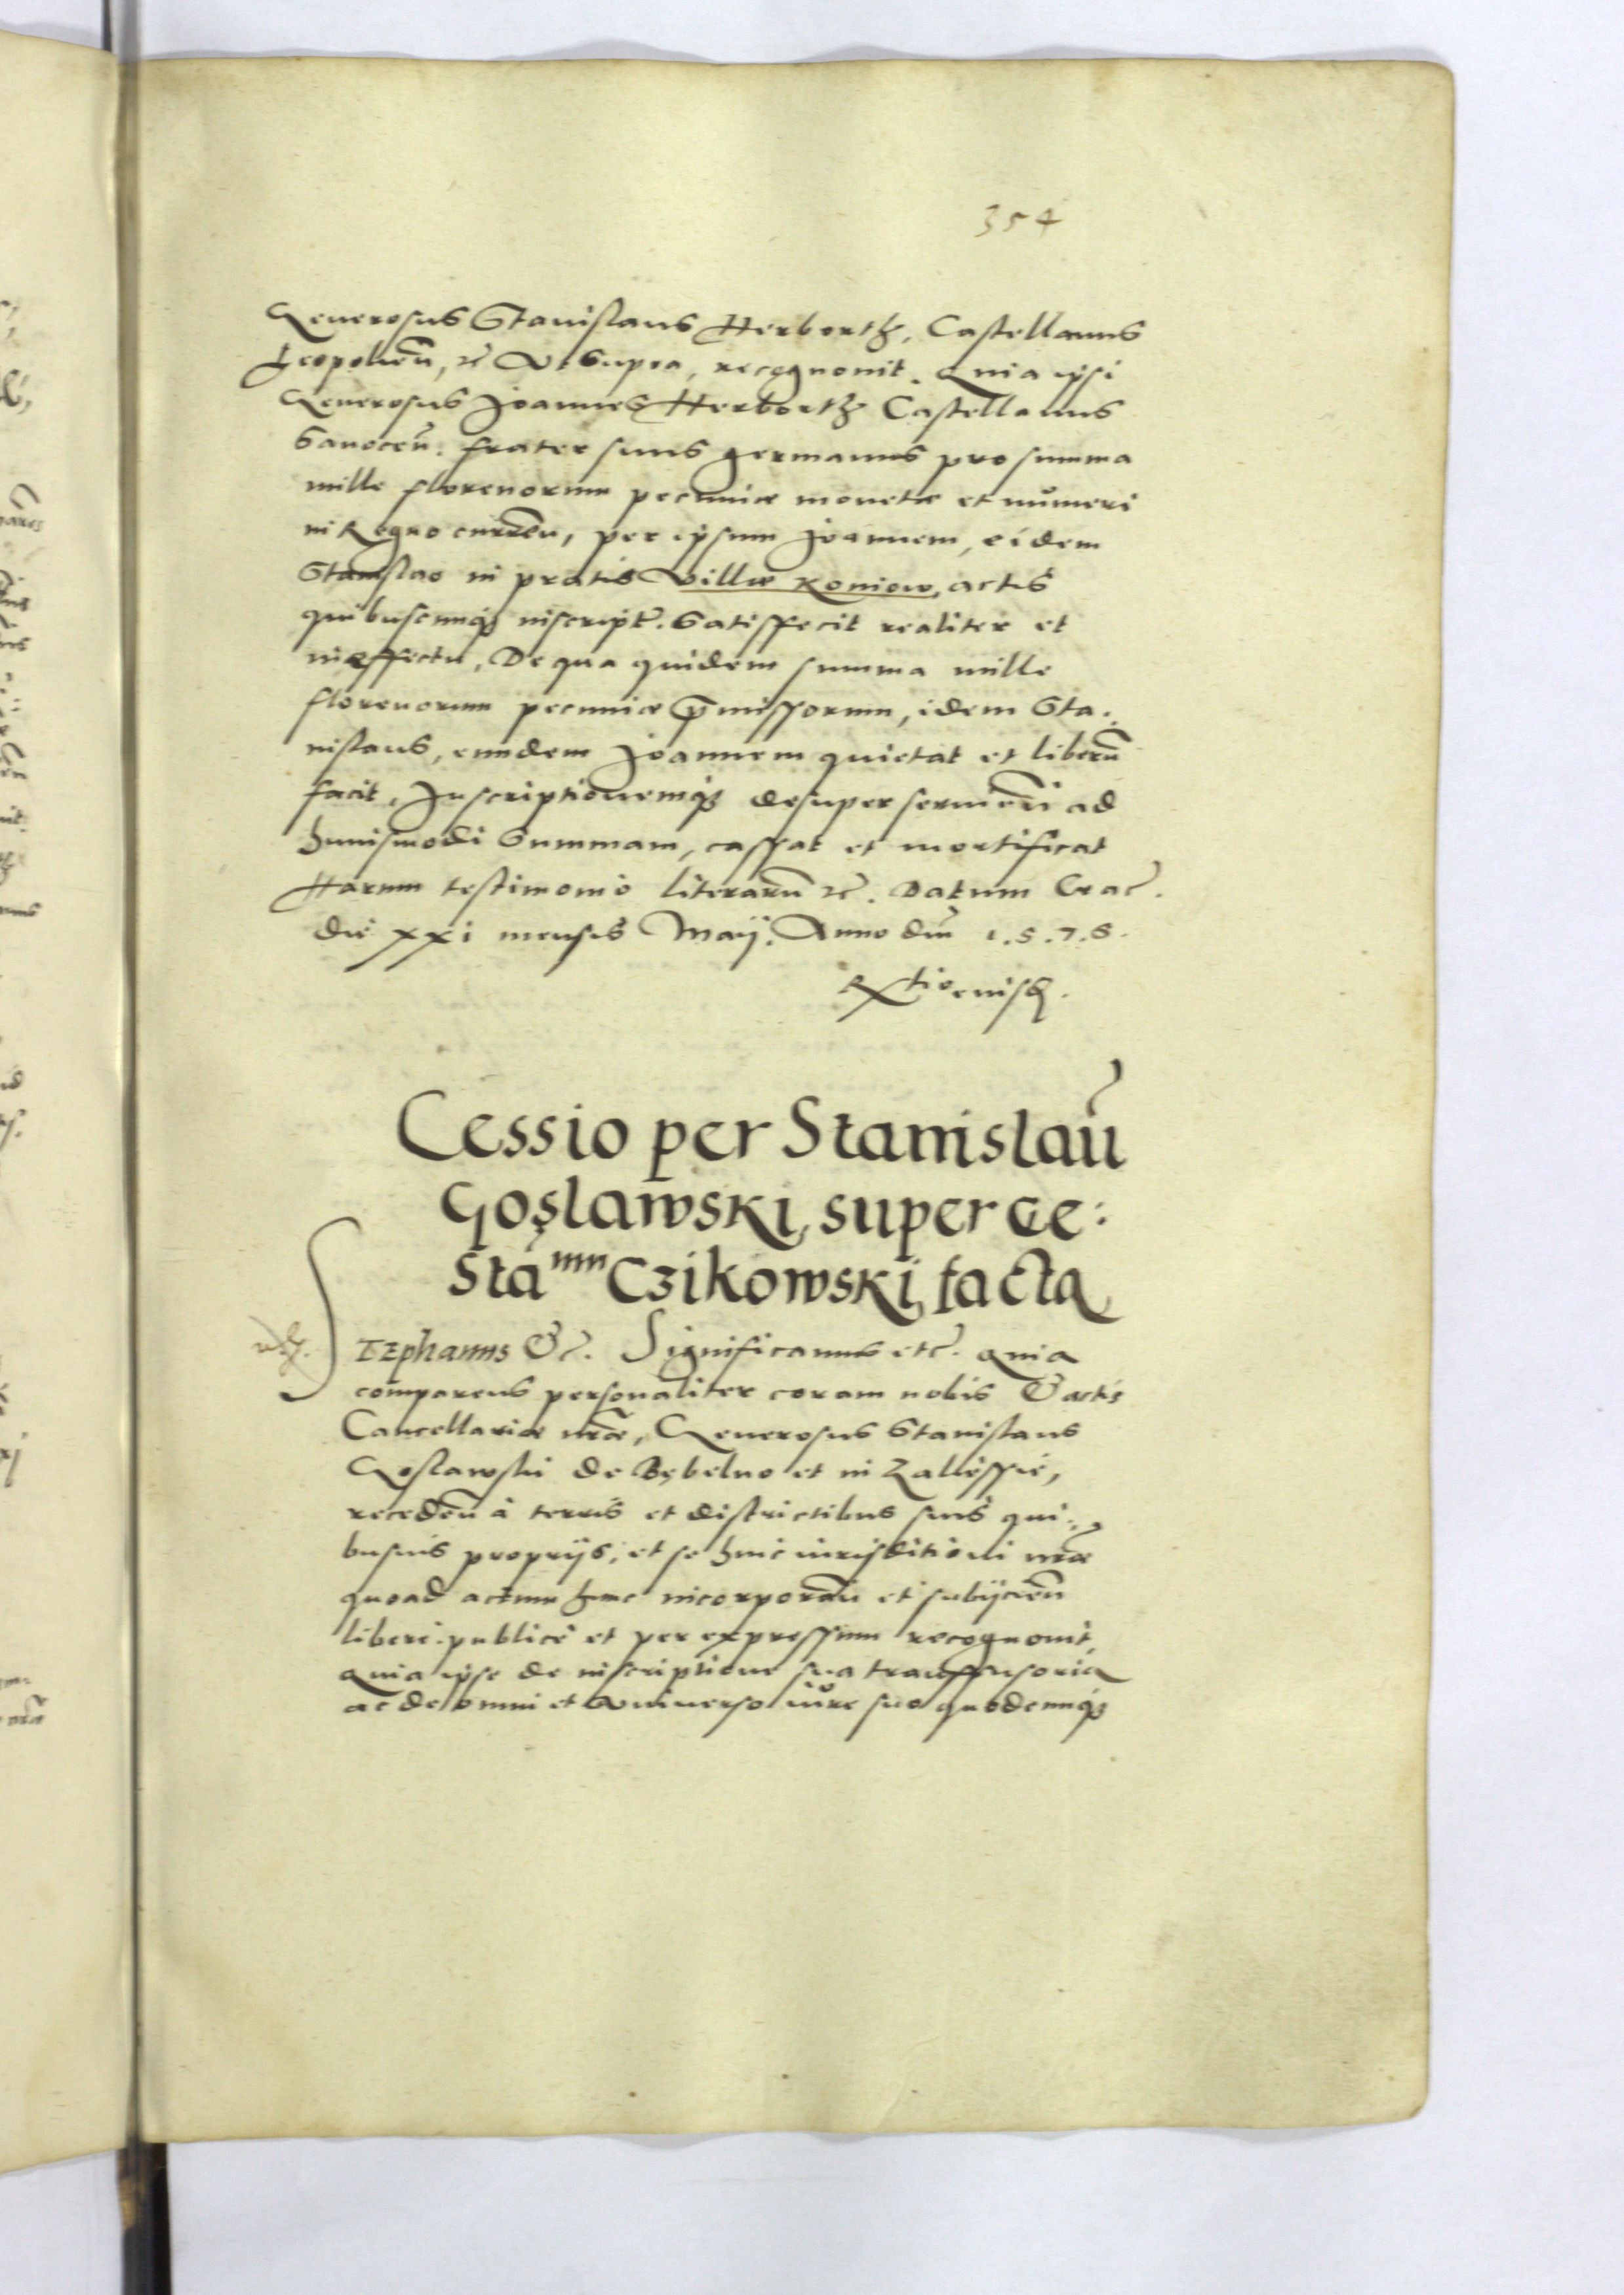 354
Generosus Stanislaus Herborth, Castellanus
Leopolień, etc Ut supra, recognovit. Quia ipsi
Generosus Joannes Herborth Castellanus
Sanoceń. frater suus germanus pro summa
mille florenorum pecuniæ monetæ et numeri
in Regno curreń, per ipsum Joannem, eidem
Stanislao in pratis Villæ Koniow, actis
quibuscunq inscript. Satisfecit realiter et
in effectu, De qua quidem summa mille
florenorum pecuniæ p̄missorum, idem Sta:
nislaus, eundem Joannem quietat et liberū
facit, Inscriptionemq desuper servieñ ad
huiusmodi Summam, cassat et mortificat
Harum testimonio literarū etc. Datum Crac.
die xxi mensis Maij. Anno dñi 1.5.7.8.
Rtio eiusd.
Cessio per Stanislaū
Goslawski, super Ge:
Sta num Czikowski, facta
Stephanus Etc. Significamus etc. Quia
comparens personaliter coram nobis Et actis
Cancellariæ nr̄æ, Generosus Stanislaus
Goslawski de Bębelno et in Zalessie,
recedeñ à terris et districtibus suis qui:
busvis proprijs, et se huic iurisditioni nr̄æ
quoad actum hunc incorporañ et subijcieñ
liberè publicè et per expressum recognovit,
Quia ipse de inscriptione sua transfusoria
ac de omni et universo iure suo quodcunq